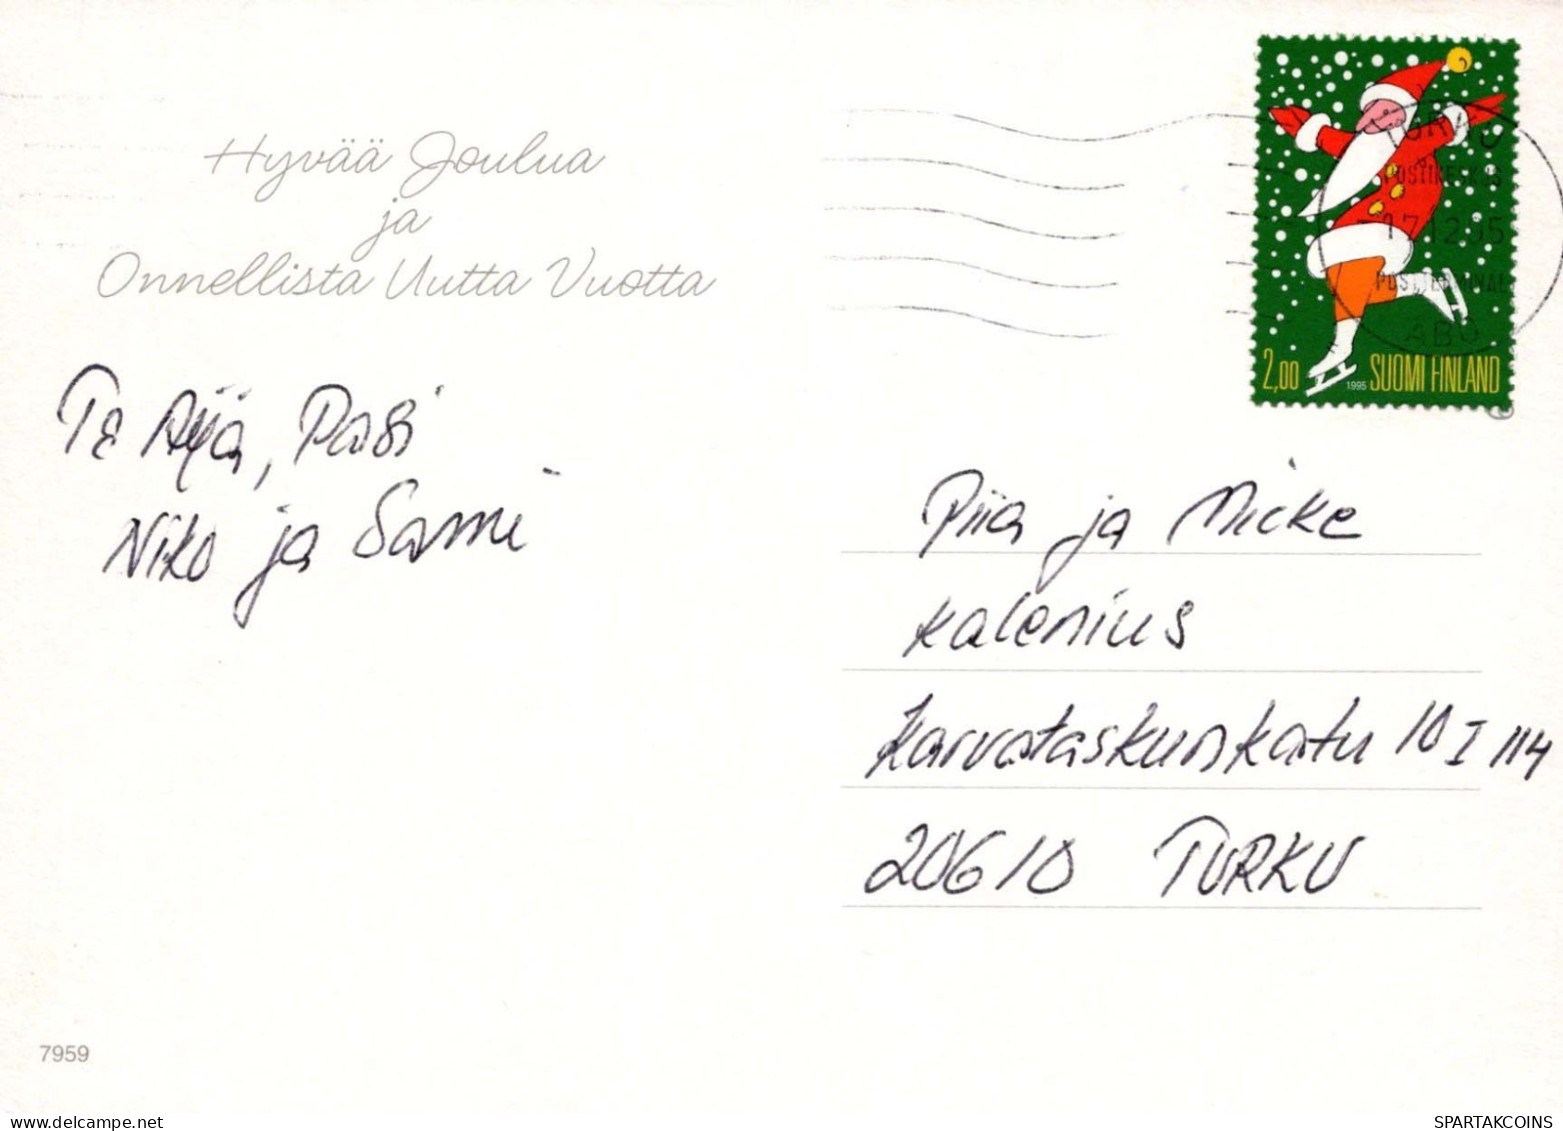 Hyvää Joulua
ja
Onnellista Uutta Vuotta
Te Aija, Pasi
Niko ja Sami
7959
TURKU
POSTIKESKUS
17.12.95
POSTTERMINAL
ÅBO
2,00 1995 SUOMI FINLAND
Piia ja Micke
Kalenius
Karvataskunkatu 10 I 114
20610 TURKU
delcampe.net
SPARTAKCOINS